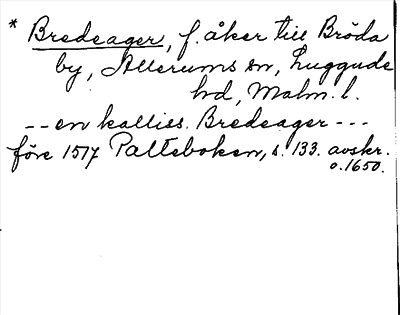 * Bredeager, f. åker till Bröda
by, Allerums sn, Luggude
hd, Malm. l.
-- en kalliss. Bredeager ---
före 1517 Palteboken, s. 133. avskr.
o. 1650.